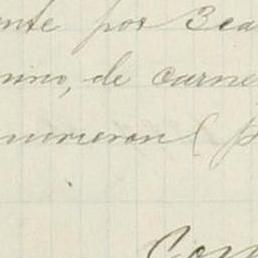 nte por 3ca
nno, de carne
murieron (p
Com